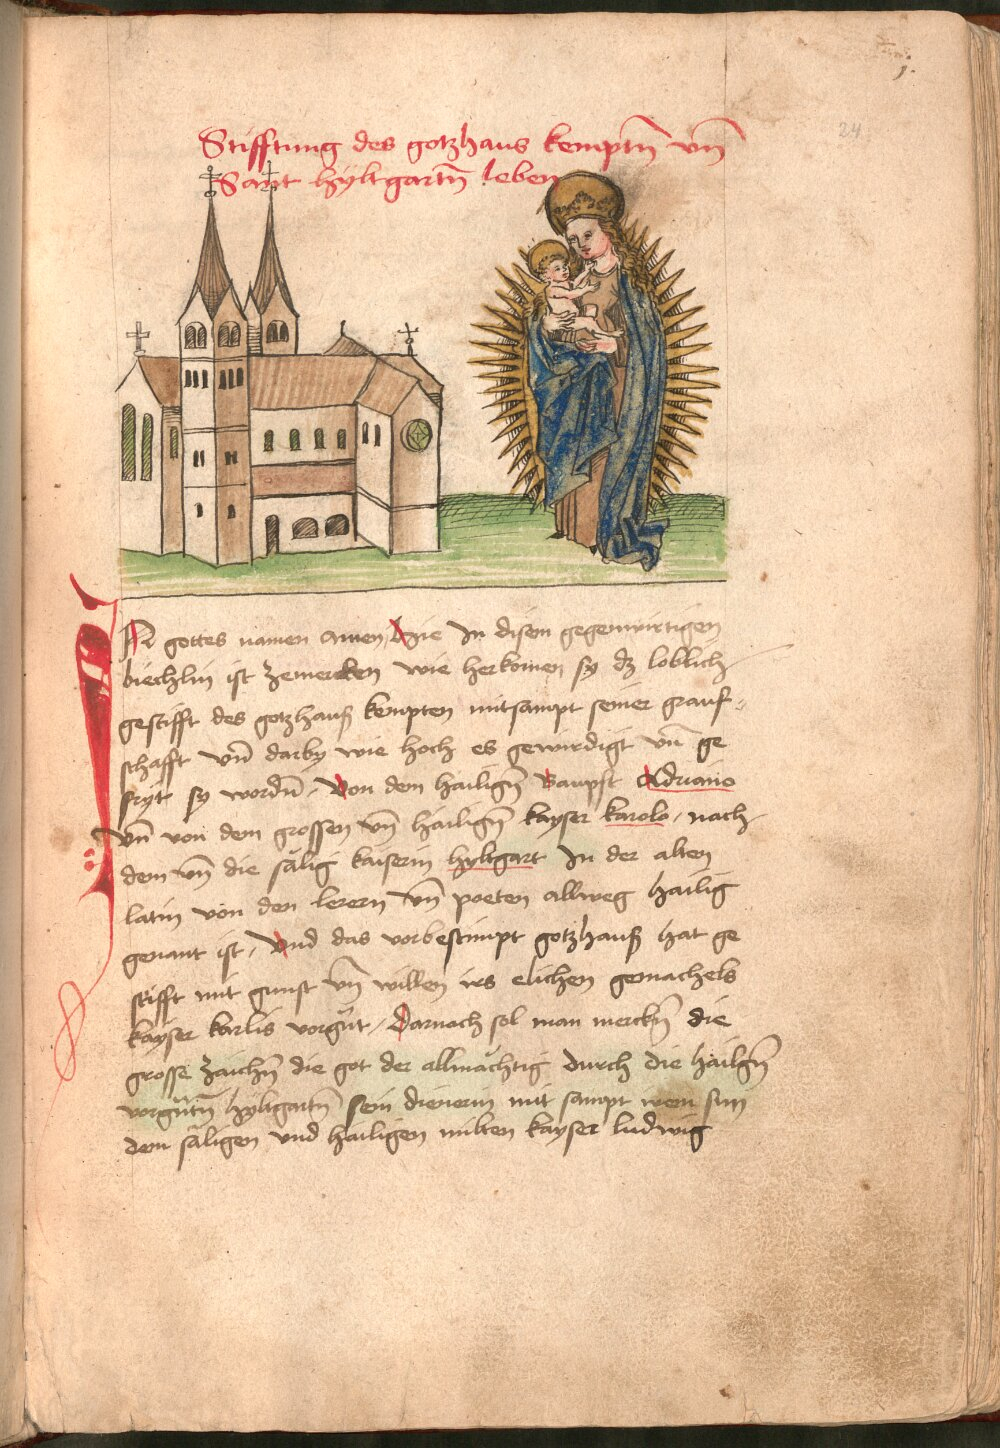 1.
24
Stifftung des gotzhaus kemptn̄ vn̄
Sant hyltgartn̄ leben
IN gottes namen amen, Hie In disem gegenwirtigen
biechlin ist zemercken wie herkomen sy dz loblich
gestifft des gotzhauß kempten mitsampt seiner grauf-
schafft vn̄ darby wie hoch es gewirdigt vn̄ ge
fryt sy wordn̄, Von dem hailign̄ Baupst Adriano
vn̄ von dem grossen vn̄ hailign̄ kayser karolo, nach
dem vn̄ die sälig kaiserin hyltgart In der alten
latin von den lerern vn̄ poeten allweg hailig
genant ist, Vnd das vorbestimpt gotzhauß hat ge
stifft mit gunst vn̄ willen irs elichen gemachels
kayser karlis vorgn̄t, Darnach sol man merckn̄ die
grosse zaichn̄ die got der allmächtig durch die hailgn̄
vorgn̄tn̄ hyltgartn̄ sein dienerin mit sampt irem sun
dem säligen vnd hailigen milten kayser ludwig